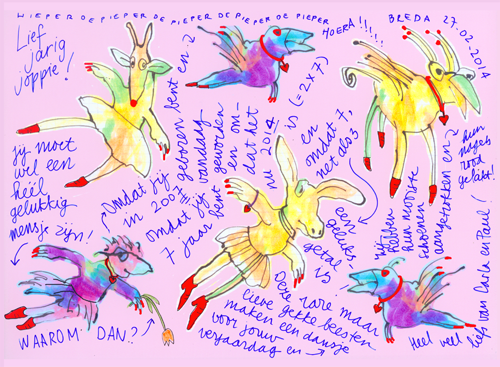 HIEPER DE PIEPER DE PIEPER DE PIEPER DE PIEPER DE PIEPER
HOERA!!!!!
BREDA 27.02.2014
Lief
jarig
joppie!
jij moet
wel een
héél
gelukkig
mensje zijn!
WAAROM DAN??
Omdat jij
in 2007 geboren bent en
omdat jij vandaag
7 jaar bent geworden
en om-
dat het
nu 2014
is (= 2 x 7)
en
omdat 7,
net als 3
een
geluks-
getal is
Deze rare maar
lieve gekke beesten
maken een dansje
voor jouw
verjaardag en
wij
hebben
hun mooiste
schoenen
aangetrokken en
hun
nagels
rood
gelakt!
Heel veel liefs van Carla en Paul!